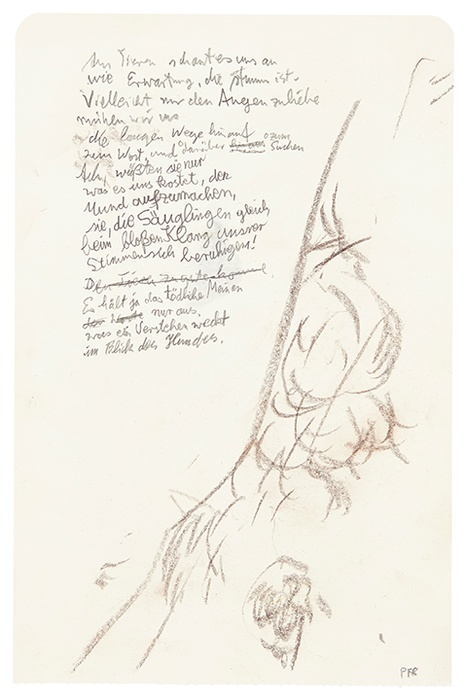 Aus Tieren schaut es uns an
wie Erwartung, die stumm ist.
Vielleicht nur den Augen zuliebe
mühen wir uns
die langen Wege hinauf
zum Wort, und darüber hinaus zum Suchen
Ach, wüßten sie nur
was es uns kostet, den
Mund aufzumachen,
sie, die Säuglingen gleich
beim bloßen Klang unsrer
Stimmen sich beruhigen!
Den Tieren
Es hält ja das tödliche Meinen
nur aus.
was ein Verstehen weckt
im Blick des Hundes.
PFR